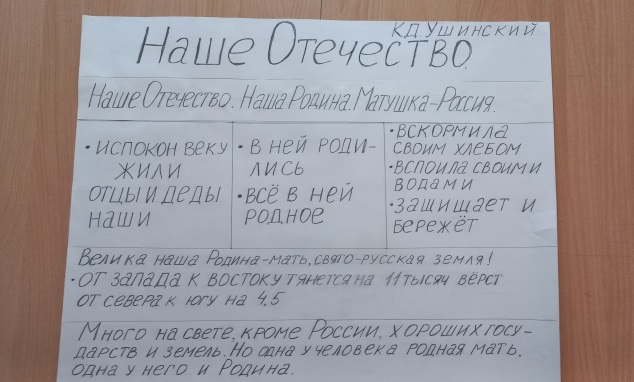 К Д Ушинский
Наше Отечество.
Наше Отечество. Наша Родина. Матушка-Россия.
• испокон веку
жили
отцы и деды
наши
• в ней роди-
лись
• всё в ней
родное
• вскормила
своим хлебом
• вспоила своими
водами
• защищает и
бережёт
Велика наша Родина-мать, свято-русская земля!
• от запада к востоку тянется на 11 тысяч вёрст
от севера к югу на 4,5
Много на свете, кроме России, хороших госу-
дарств и земель. Но одна у человека родная мать,
одна у него и Родина.